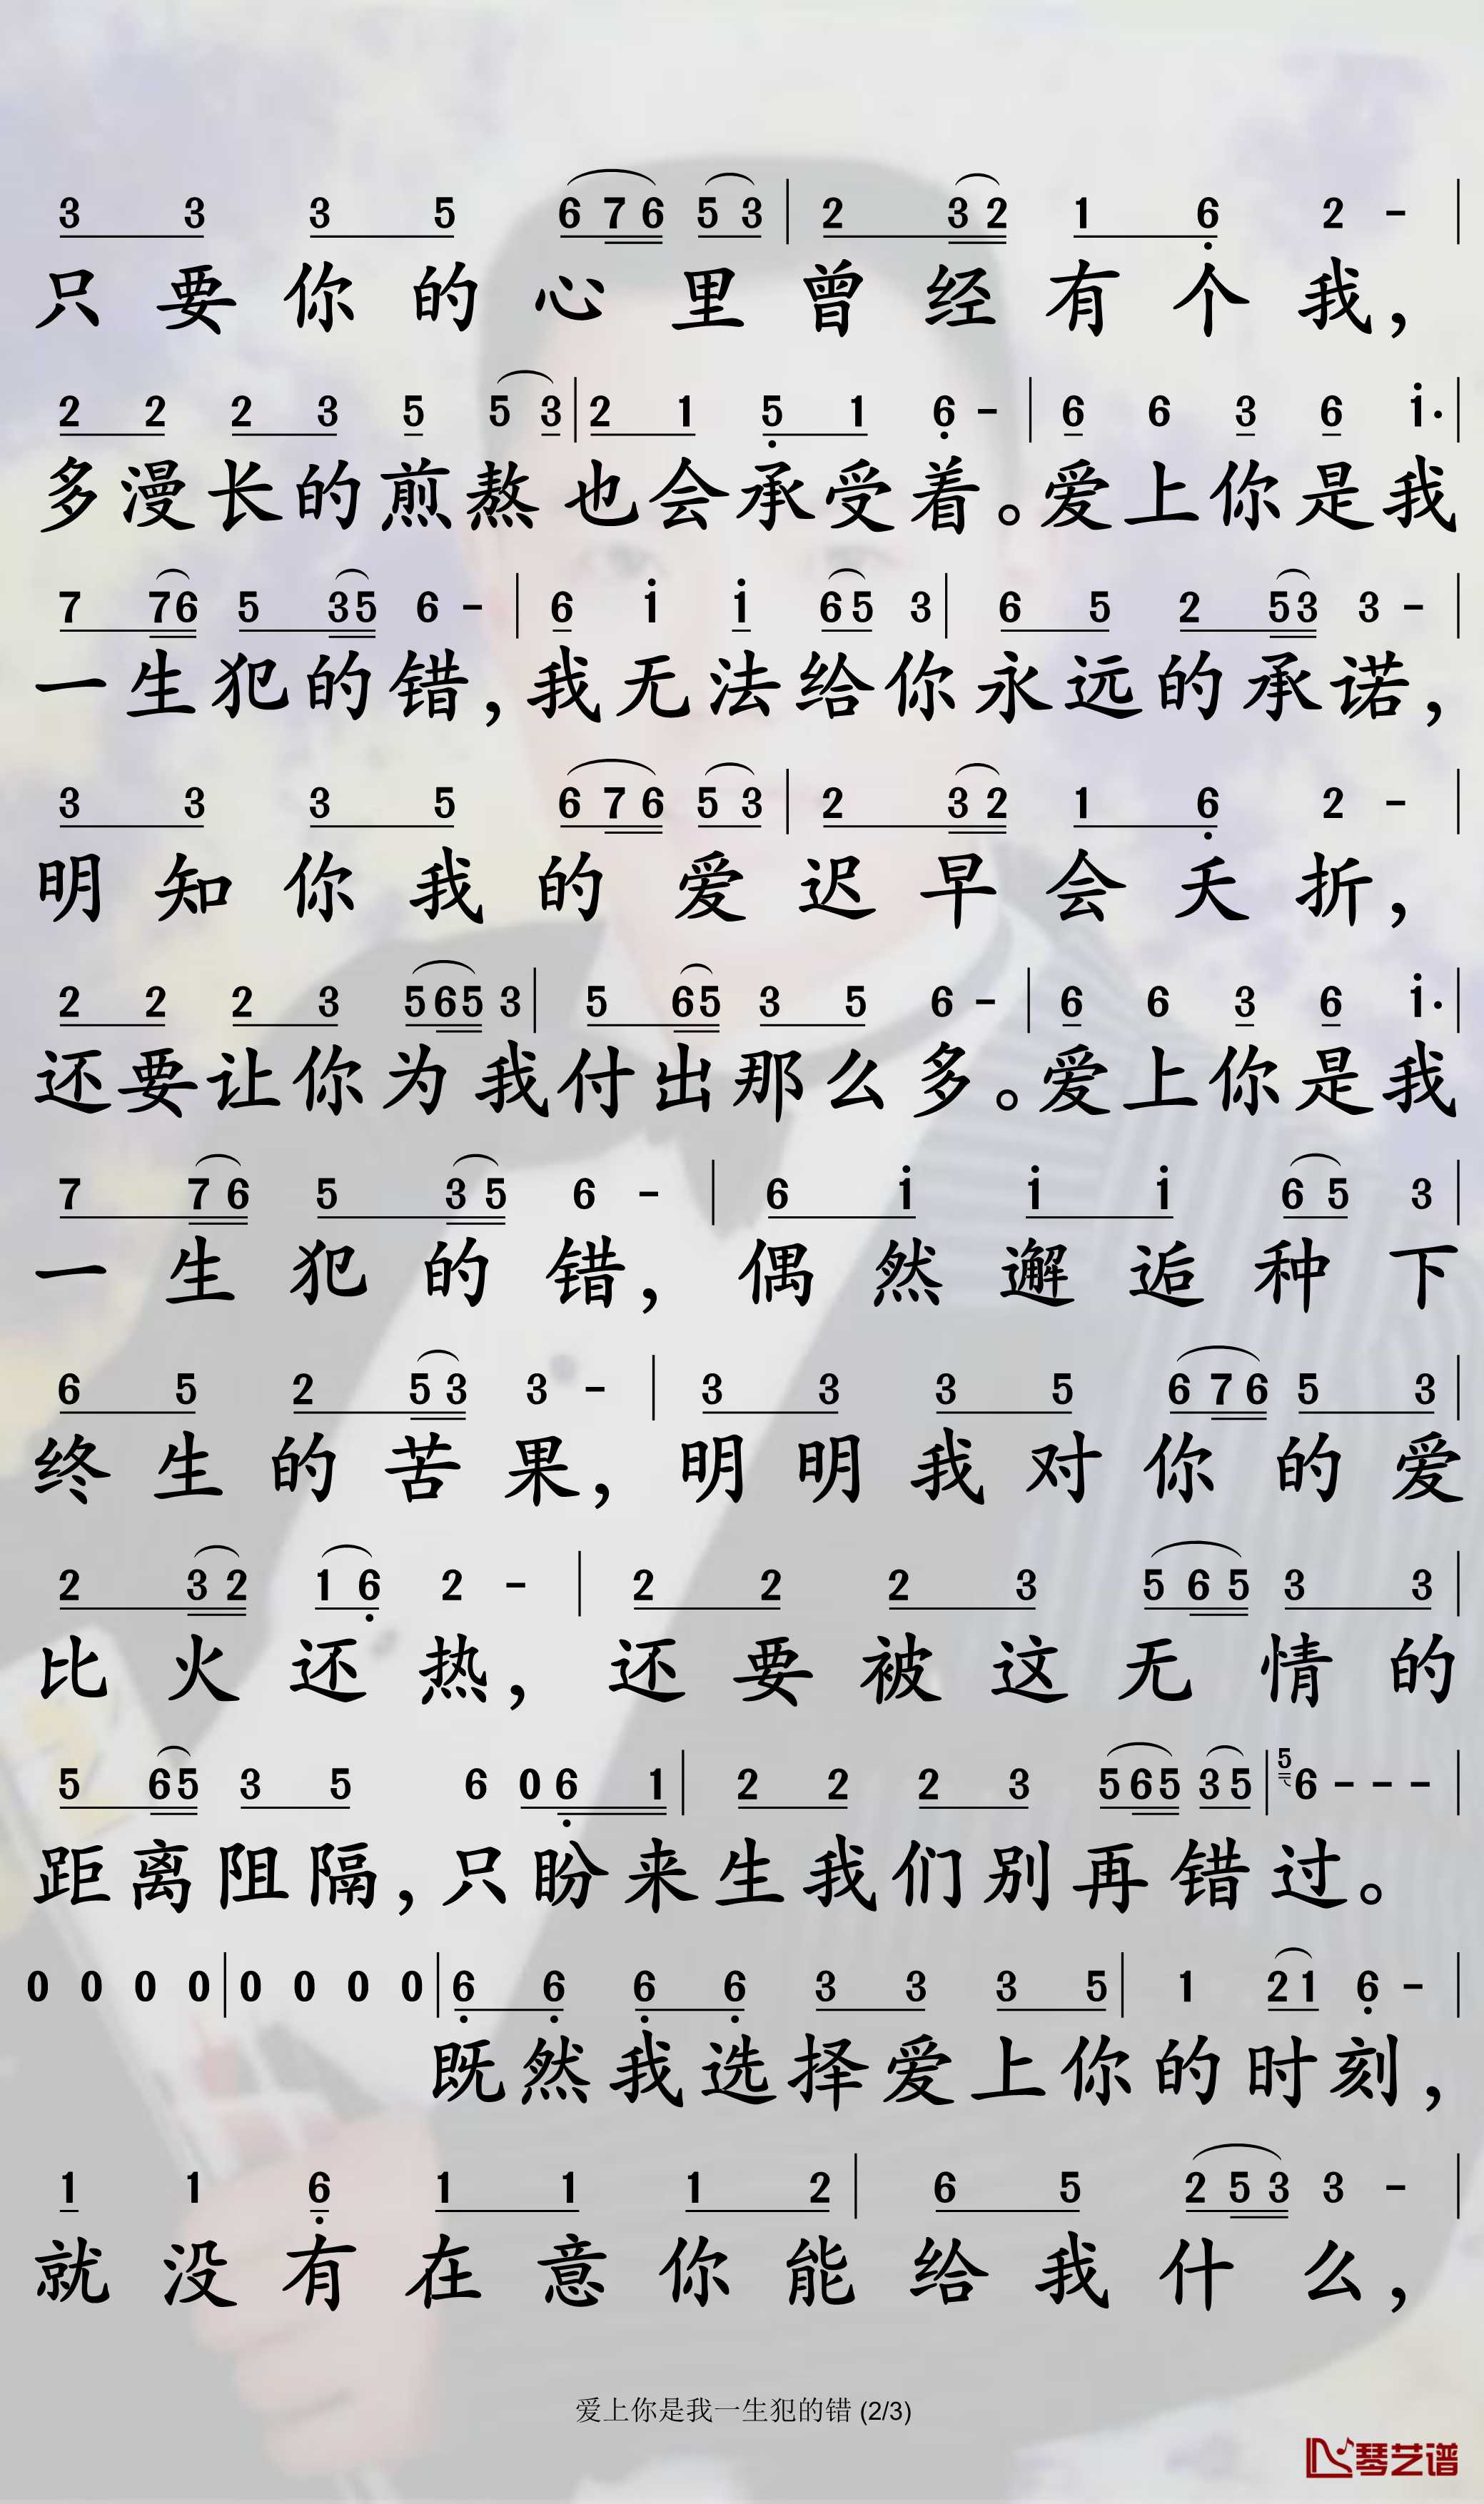 3 3 3 5 6 7 6 5 3 | 2 3 2 1 6 2 - |
只要你的心里曾经有个我，
2 2 2 3 5 5 3 | 2 1 5 1 6 - | 6 6 3 6 i· |
多漫长的煎熬也会承受着。爱上你是我
7 7 6 5 3 5 6 - | 6 i i 6 5 3 | 6 5 2 5 3 3 - |
一生犯的错，我无法给你永远的承诺，
3 3 3 5 6 7 6 5 3 | 2 3 2 1 6 2 - |
明知你我的爱迟早会夭折，
2 2 2 3 5 6 5 3 | 5 6 5 3 5 6 - | 6 6 3 6 i· |
还要让你为我付出那么多。爱上你是我
7 7 6 5 3 5 6 - | 6 i i i 6 5 3 |
一生犯的错，偶然邂逅种下
6 5 2 5 3 3 - | 3 3 3 5 6 7 6 5 3 |
终生的苦果，明明我对你的爱
2 3 2 1 6 2 - | 2 2 2 3 5 6 5 3 3 |
比火还热，还要被这无情的
5 6 5 3 5 6 0 6 1 | 2 2 2 3 5 6 5 3 5 | 5 6 - - - |
距离阻隔，只盼来生我们别再错过。
0 0 0 0 | 0 0 0 0 | 6 6 6 6 3 3 3 5 | 1 2 1 6 - |
既然我选择爱上你的时刻，
1 1 6 1 1 1 2 | 6 5 2 5 3 3 - |
就没有在意你能给我什么，
爱上你是我一生犯的错 (2/3)
琴艺谱